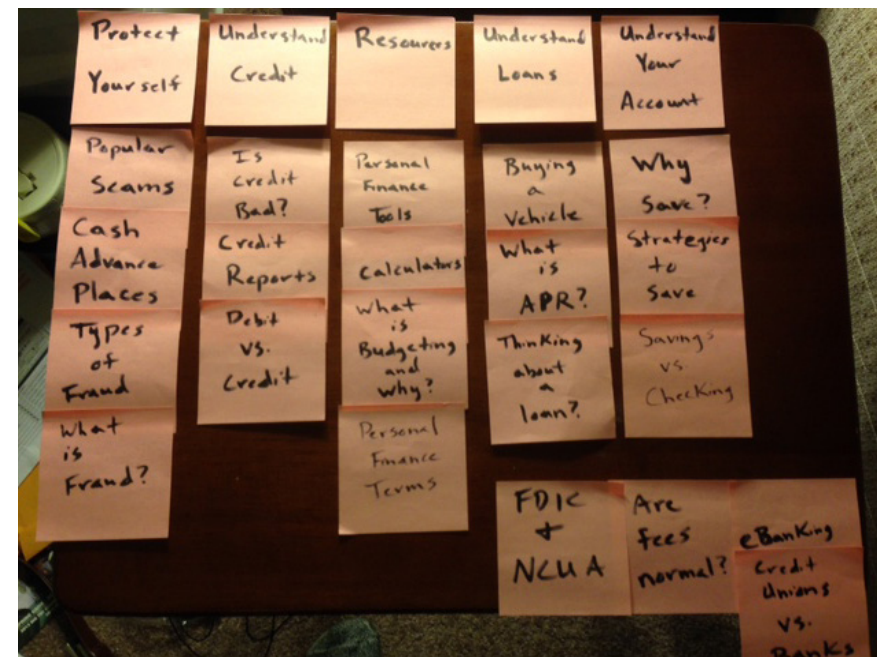 Protect
Yourself
Popular
Scams
Cash
Advance
Places
Types
of
Fraud
What
is
Fraud?
Understand
Credit
Is
Credit
Bad?
Credit
Reports
Debit
vs.
Credit
Resources
Personal
Finance
Tools
Calculators
What
is
Budgeting
and
Why?
Personal
Finance
Terms
Understand
Loans
Buying
a
Vehicle
What
is
APR?
Thinking
about
a
loan?
Understand
Your
Account
Why
Save?
Strategies
to
Save
Savings
vs
Checking
FDIC
+
NCUA
Are
fees
normal?
eBanking
Credit
Unions
vs.
Banks